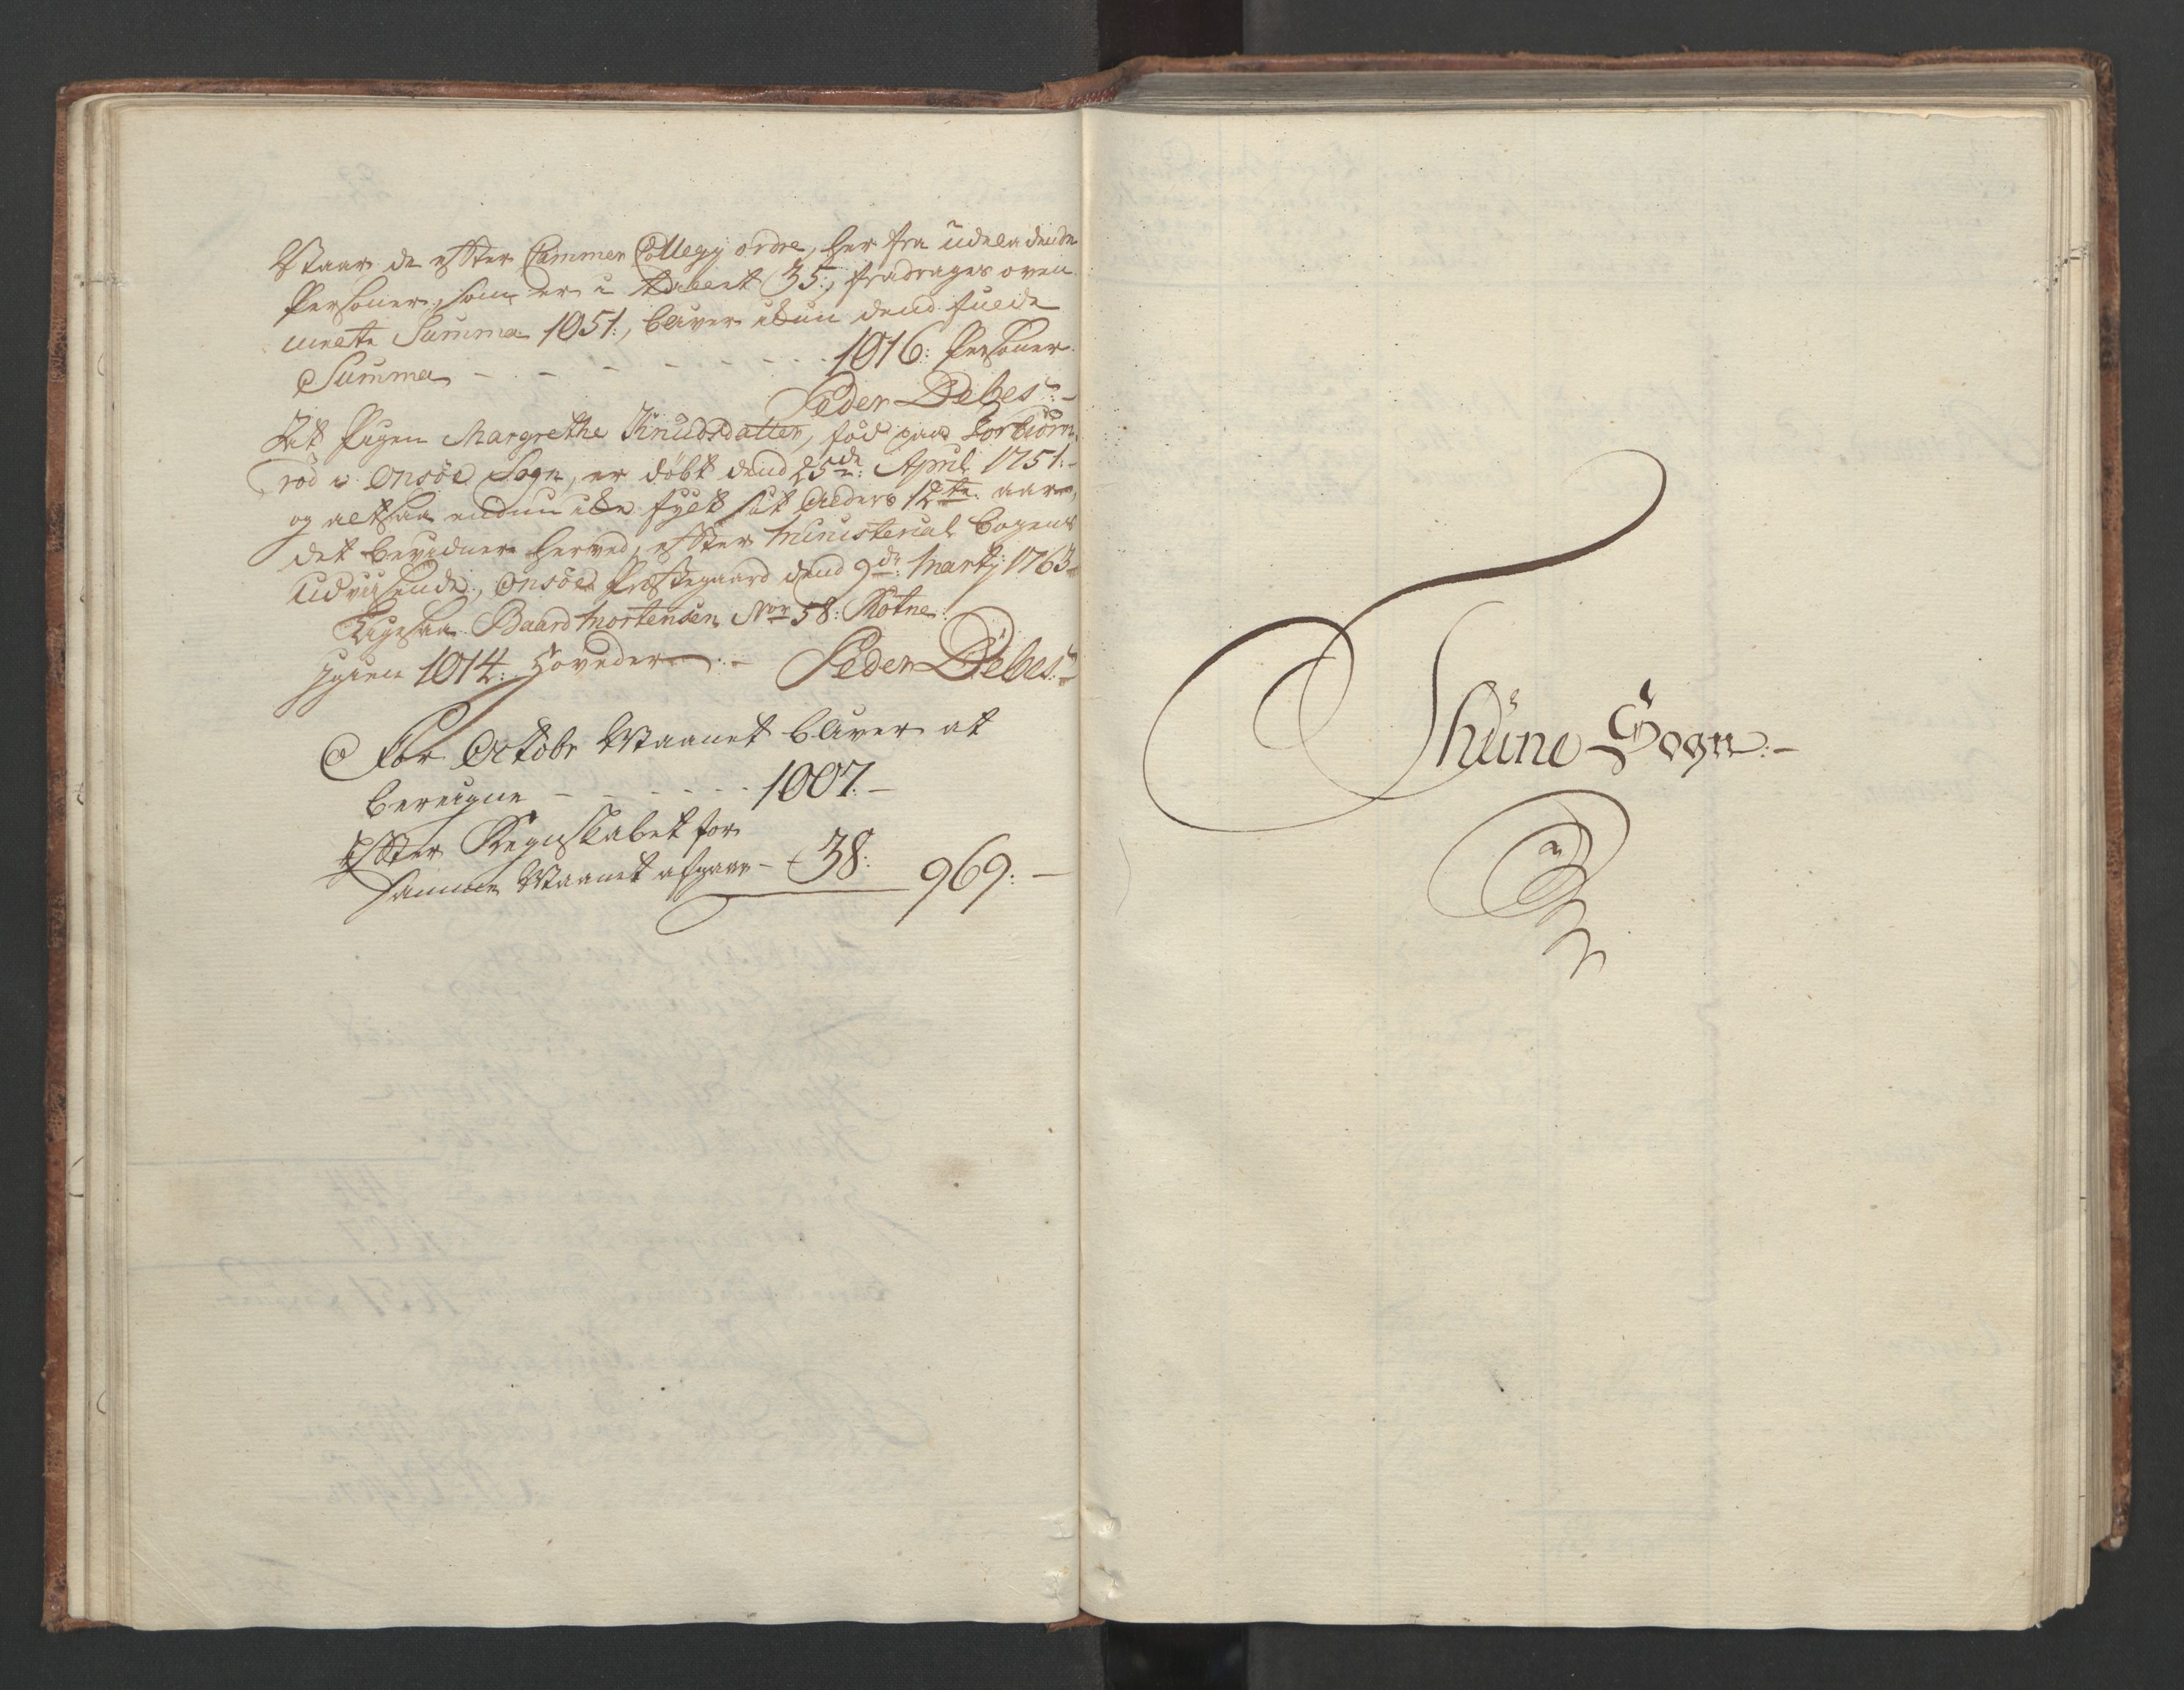 Naar de efter Cammer Collegij ordre, her fra udeladende
Persohner, som er i tallet 35:, fradrages oven
meelte Summa 1051:, bliver ikun dend fulde
Summa - - - - - - - 1016: Persohner.
Peder Debes:-
At Pigen Margrethe Knudsdatter, fød paa Torbiørn
rød i Onsøe Sogn, er døbt dend 25de: April 1751:-
og altsaa endnu icke fyldt sit Alders 12te: aar,
det bevidner herved, efter Ministerial Bogens
Udviisende, Onsøe Præstegaard dend 9de: Martj 1763
Ligesaa Baard Mortensen No: 58: Kotne.
igien 1014: Hoveder:- Peder Debes:-
For Octobr Maanet bliver at
beregne - - - - - - 1007.-
Efter Regnskabet for
samme Maanet afgaar - 38: 969:-
Thüne Sogn:-